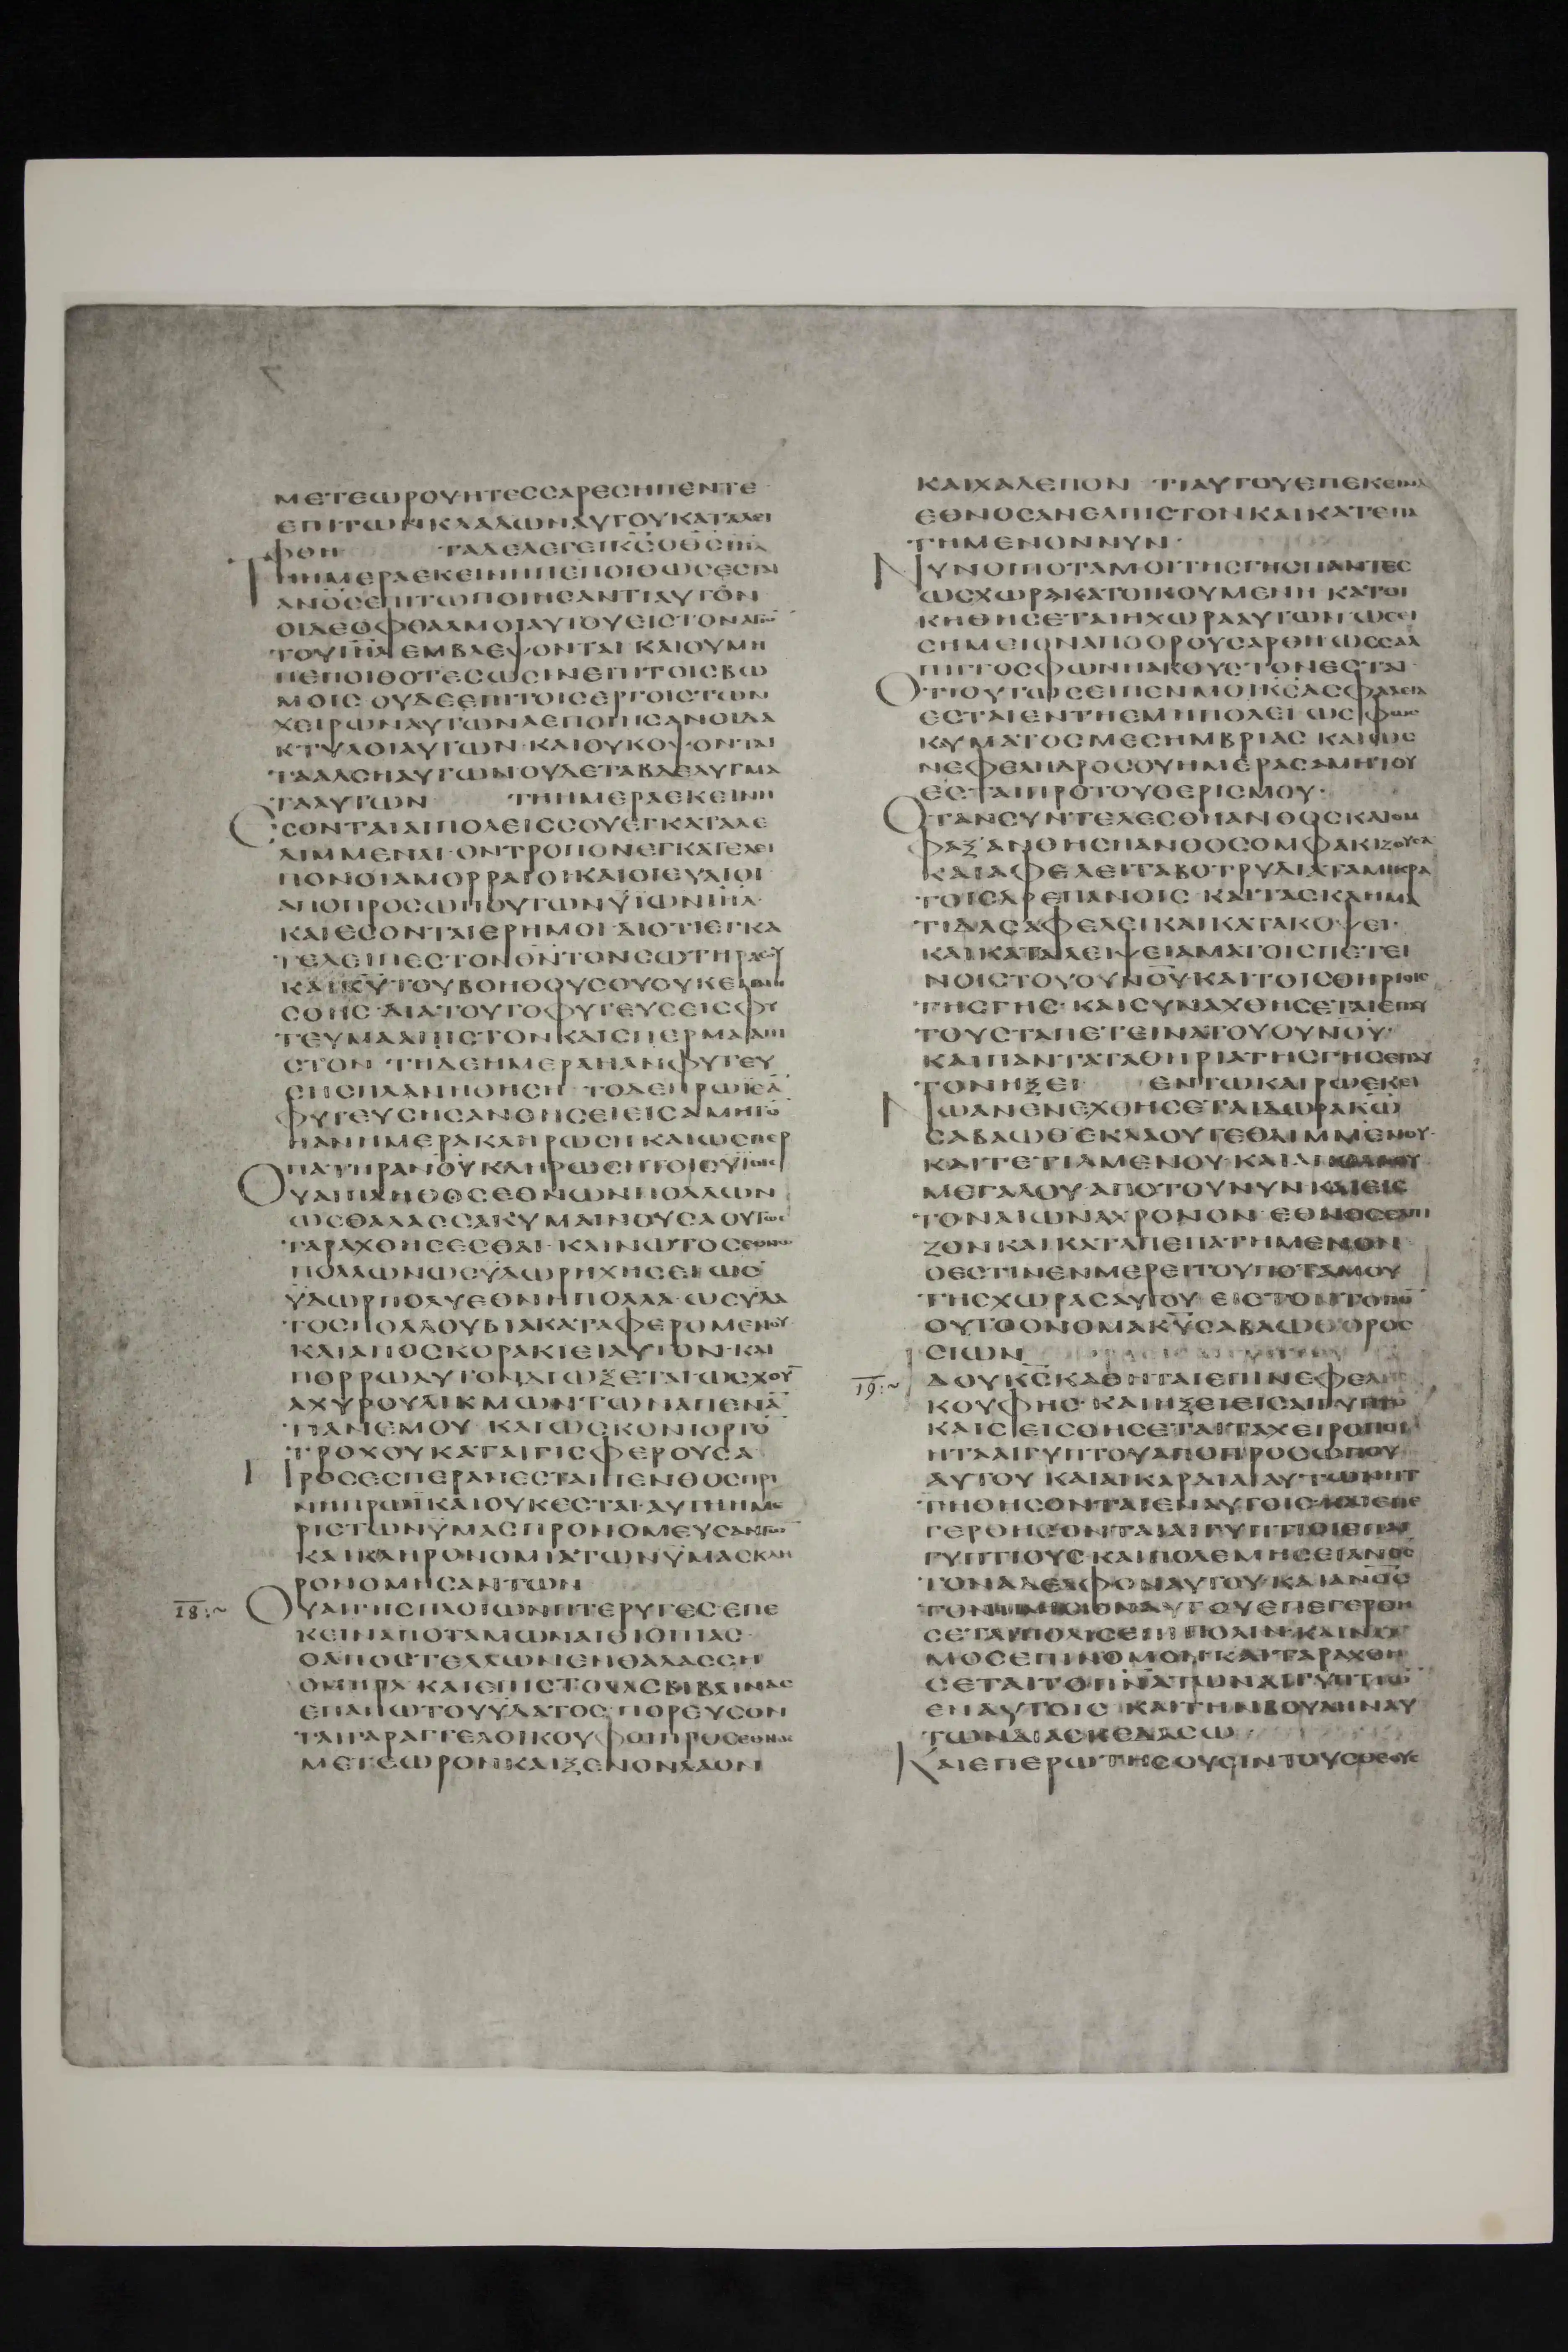 ΜΕΤΕΩΡΟΥΗΤΕССΑΡΕСΗΠΕΝΤΕ
ΕΠΙΤΩΝΚΛΑΔΩΝΑΥΤΟΥΚΑΤΑΛΕΙ
ΦΘΗ ΤΑΔΕΛΕΓΕΙΚ̅С̅ΟΘ̅С̅Ι̅Η̅Λ̅
ΤΗΗΜΕΡΑΕΚΕΙΝΗΠΕΠΟΙΘΩСΕСΤΑΙ
ΑΝ̅Ο̅С̅ΕΠΙΤΩΠΟΙΗСΑΝΤΙΑΥΤΟΝ
ΟΙΔΕΟΦΘΑΛΜΟΙΑΥΤΟΥΕΙСΤΟΝΑΓΙΟ̅
ΤΟΥΙ̅Η̅Λ̅ΕΜΒΛΕΨΟΝΤΑΙ ΚΑΙΟΥΜΗ
ΠΕΠΟΙΘΟΤΕСΩСΙΝΕΠΙΤΟΙСΒΩ
ΜΟΙС ΟΥΔΕΕΠΙΤΟΙСΕΡΓΟΙСΤΩΝ
ΧΕΙΡΩΝΑΥΤΩΝΑΕΠΟΙΗСΑΝΟΙΔΑ
ΚΤΥΛΟΙΑΥΤΩΝ·ΚΑΙΟΥΚΟΨΟΝΤΑΙ
ΤΑΔΑСΗΑΥΤΩΝΟΥΔΕΤΑΒΔΕΛΥΓΜΑ
ΤΑΑΥΤΩΝ ΤΗΗΜΕΡΑΕΚΕΙΝΗ
ΕСΟΝΤΑΙΑΙΠΟΛΕΙССΟΥΕΓΚΑΤΑΛΕ
ΛΙΜΜΕΝΑΙ·ΟΝΤΡΟΠΟΝΕΓΚΑΤΕΛΕΙ
ΠΟΝΟΙΑΜΟΡΡΑΙΟΙΚΑΙΟΙΕΥΑΙΟΙ
ΑΠΟΠΡΟСΩΠΟΥΤΩΝΫΙΩΝΙ̅Η̅Λ̅·
ΚΑΙΕСΟΝΤΑΙΕΡΗΜΟΙ·ΔΙΟΤΙΕΓΚΑ
ΤΕΛΕΙΠΕСΤΟΝΘ̅Ν̅ΤΟΝСΩΤΗΡΑСΟΥ
ΚΑΙΚ̅Υ̅ΤΟΥΒΟΗΘΟΥСΟΥΟΥΚΕΜΝΗ
СΘΗС·ΔΙΑΤΟΥΤΟΦΥΤΕΥСΕΙСΦΥ
ΤΕΥΜΑΑΠΙСΤΟΝΚΑΙСΠΕΡΜΑΑΠΙ
СΤΟΝ ΤΗΔΕΗΜΕΡΑΗΑΝΦΥΤΕΥ
СΗСΠΛΑΝΗΘΗСΗ ΤΟΔΕΠΡΩΙΕΑ̅
ΦΥΤΕΥСΗСΑΝΘΗСΕΙΕΙСΑΜΗΤΟ̅
ΗΑΝΗΜΕΡΑΚΛΗΡΩСΗ ΚΑΙΩСΠΕΡ
ΠΑΤΗΡΑΝ̅Ο̅Υ̅ΚΛΗΡΩСΗΤΟΙСΥΙΟΙС
ΟΥΑΙΠΛΗΘΟСΕΘΝΩΝΠΟΛΛΩΝ
ΩСΘΑΛΑССΑΚΥΜΑΙΝΟΥСΑΟΥΤΩС
ΤΑΡΑΧΘΗСΕСΘΑΙ·ΚΑΙΝΩΤΟСΕΘΝΩ̅
ΠΟΛΛΩΝΩСΥΔΩΡΗΧΗСΕΙ·ΩС
ΫΔΩΡΠΟΛΥΕΘΝΗΠΟΛΛΑ·ΩСΥΔΑ
ΤΟСΠΟΛΛΟΥΒΙΑΚΑΤΑΦΕΡΟΜΕΝΟΥ
ΚΑΙΑΠΟСΚΟΡΑΚΙΕΙΑΥΤΟΝ·ΚΑΙ
ΠΟΡΡΩΑΥΤΟΝΔΙΩΞΕΤΑΙ·ΩСΧΟΥ̅
ΑΧΥΡΟΥΛΙΚΜΩΝΤΩΝΑΠΕΝΑ̅
ΤΙΑΝΕΜΟΥ ΚΑΙΩСΚΟΝΙΟΡΤΟ̅
ΤΡΟΧΟΥΚΑΤΑΙΓΙСΦΕΡΟΥСΑ
ΠΡΟСΕСΠΕΡΑΝΕСΤΑΙΠΕΝΘΟСΠΡΙ
ΝΗΠΡΩΪΚΑΙΟΥΚΕСΤΑΙ·ΑΥΤΗΗΜΕ
ΡΙСΤΩΝΫΜΑСΠΡΟΝΟΜΕΥСΑΝΤΩ̅
ΚΑΙΚΛΗΡΟΝΟΜΙΑΤΩΝΫΜΑСΚΛΗ
ΡΟΝΟΜΗСΑΝΤΩΝ
18:~ ΟΥΑΙΓΗСΠΛΟΙΩΝΠΤΕΡΥΓΕС·ΕΠΕ
ΚΕΙΝΑΠΟΤΑΜΩΝΑΙΘΙΟΠΙΑС·
ΟΑΠΟСΤΕΛΛΩΝΕΝΘΑΛΑССΗ
ΟΜΗΡΑ ΚΑΙΕΠΙСΤΟΛΑСΒΙΒΛΙΝΑС
ΕΠΑΝΩΤΟΥΥΔΑΤΟС·ΠΟΡΕΥСΟΝ
ΤΑΙΓΑΡΑΓΓΕΛΟΙΚΟΥΦΟΙΠΡΟСΕΘΝΟС
ΜΕΤΕΩΡΟΝΚΑΙΞΕΝΟΝΛΑΟΝ
ΚΑΙΧΑΛΕΠΟΝ ΤΙΑΥΤΟΥΕΠΕΚΕΙΝΑ
ΕΘΝΟСΑΝΕΛΠΙСΤΟΝΚΑΙΚΑΤΕΠΑ
ΤΗΜΕΝΟΝΝΥΝ·
ΝΥΝΟΙΠΟΤΑΜΟΙΤΗСΓΗСΠΑΝΤΕС
ΩСΧΩΡΑΚΑΤΟΙΚΟΥΜΕΝΗ ΚΑΤΟΙ
ΚΗΘΗСΕΤΑΙΗΧΩΡΑΑΥΤΩΝ·ΩСΕΙ
СΗΜΕΙΟΝΑΠΟΟΡΟΥСΑΡΘΗΩССΑΛ
ΠΙΓΓΟСΦΩΝΗΑΚΟΥСΤΟΝΕСΤΑΙ·
ΟΤΙΟΥΤΩСΕΙΠΕΝΜΟΙΚ̅С̅ΑСΦΑΛΕΙΑ
ΕСΤΑΙΕΝΤΗΕΜΗΠΟΛΕΙ·ΩСΦΩС
ΚΥΜΑΤΟСΜΕСΗΜΒΡΙΑС ΚΑΙΩС
ΝΕΦΕΛΗΔΡΟСΟΥΗΜΕΡΑСΑΜΗΤΟΥ
ΕСΤΑΙΠΡΟΤΟΥΘΕΡΙСΜΟΥ·
ΟΤΑΝСΥΝΤΕΛΕСΘΗΑΝΘΟСΚΑΙΟΜ
ΦΑΞΑΝΘΗСΗΑΝΘΟСΟΜΦΑΚΙΖΟΥСΑ
ΚΑΙΑΦΕΛΕΙΤΑΒΟΤΡΥΔΙΑΤΑΜΙΚΡΑ
ΤΟΙСΔΡΕΠΑΝΟΙС ΚΑΙΤΑСΚΛΗΜΑ
ΤΙΔΑСΑΦΕΛΕΙΚΑΙΚΑΤΑΚΟΨΕΙ·
ΚΑΙΚΑΤΑΛΕΙΨΕΙΑΜΑΤΟΙСΠΕΤΕΙ
ΝΟΙСΤΟΥΟΥΝΟΥΚΑΙΤΟΙСΘΗΡΙΟΙС
ΤΗСΓΗС·ΚΑΙСΥΝΑΧΘΗСΕΤΑΙΕΠΑΥ
ΤΟΥСΤΑΠΕΤΕΙΝΑΤΟΥΟΥΝΟΥ·
ΚΑΙΠΑΝΤΑΤΑΘΗΡΙΑΤΗСΓΗСΕΠΑΥ
ΤΟΝΗΞΕΙ ΕΝΤΩΚΑΙΡΩΕΚΕΙ
ΝΩΑΝΕΝΕΧΘΗСΕΤΑΙΔΩΡΑΚ̅Ω̅
СΑΒΑΩΘΕΚΛΑΟΥΤΕΘΛΙΜΜΕΝΟΥ·
ΚΑΙΤΕΤΙΛΜΕΝΟΥ·ΚΑΙΑΠΟΛΑΟΥ
ΜΕΓΑΛΟΥ·ΑΠΟΤΟΥΝΥΝΚΑΙΕΙС
ΤΟΝΑΙΩΝΑΧΡΟΝΟΝ·ΕΘΝΟСΕΛΠΙ
ΖΟΝΚΑΙΚΑΤΑΠΕΠΑΤΗΜΕΝΟΝ
ΟΕСΤΙΝΕΝΜΕΡΕΙΤΟΥΠΟΤΑΜΟΥ
ΤΗСΧΩΡΑСΑΥΤΟΥ·ΕΙСΤΟΝΤΟΠΟ̅
ΟΥΤΟΟΝΟΜΑΚ̅Υ̅СΑΒΑΩΘΟΡΟС
СΙΩΝ
19:~ ΙΔΟΥΚ̅С̅ΚΑΘΗΤΑΙΕΠΙΝΕΦΕΛΗС
ΚΟΥΦΗС·ΚΑΙΗΞΕΙΕΙСΑΙΓΥΠΤΟ̅
ΚΑΙСΕΙСΘΗСΕΤΑΙΤΑΧΕΙΡΟΠΟΙ
ΗΤΑΑΙΓΥΠΤΟΥΑΠΟΠΡΟСΩΠΟΥ
ΑΥΤΟΥ ΚΑΙΑΙΚΑΡΔΙΑΙΑΥΤΩΝΗΤ
ΤΗΘΗСΟΝΤΑΙΕΝΑΥΤΟΙС·ΚΑΙΕΠΕ
ΓΕΡΘΗСΟΝΤΑΙΑΙΓΥΠΤΙΟΙΕΠΑΙ
ΓΥΠΤΙΟΥС·ΚΑΙΠΟΛΕΜΗСΕΙΑΝ̅Ο̅С̅
ΤΟΝΑΔΕΛΦΟΝΑΥΤΟΥ·ΚΑΙΑΝ̅Ο̅С̅
ΤΟΝΠΛΗСΙΟΝΑΥΤΟΥΕΠΕΓΕΡΘΗ
СΕΤΑΙΠΟΛΙСΕΠΙΠΟΛΙΝ·ΚΑΙΝΟ
ΜΟСΕΠΙΝΟΜΟΝ·ΚΑΙΤΑΡΑΧΘΗ
СΕΤΑΙΤΟΠ̅Ν̅Α̅ΤΩΝΑΙΓΥΠΤΙΩ̅
ΕΝΑΥΤΟΙС ΚΑΙΤΗΝΒΟΥΛΗΝΑΥ
ΤΩΝΔΙΑСΚΕΔΑСΩ
ΚΑΙΕΠΕΡΩΤΗСΟΥСΙΝΤΟΥСΘΕΟΥС